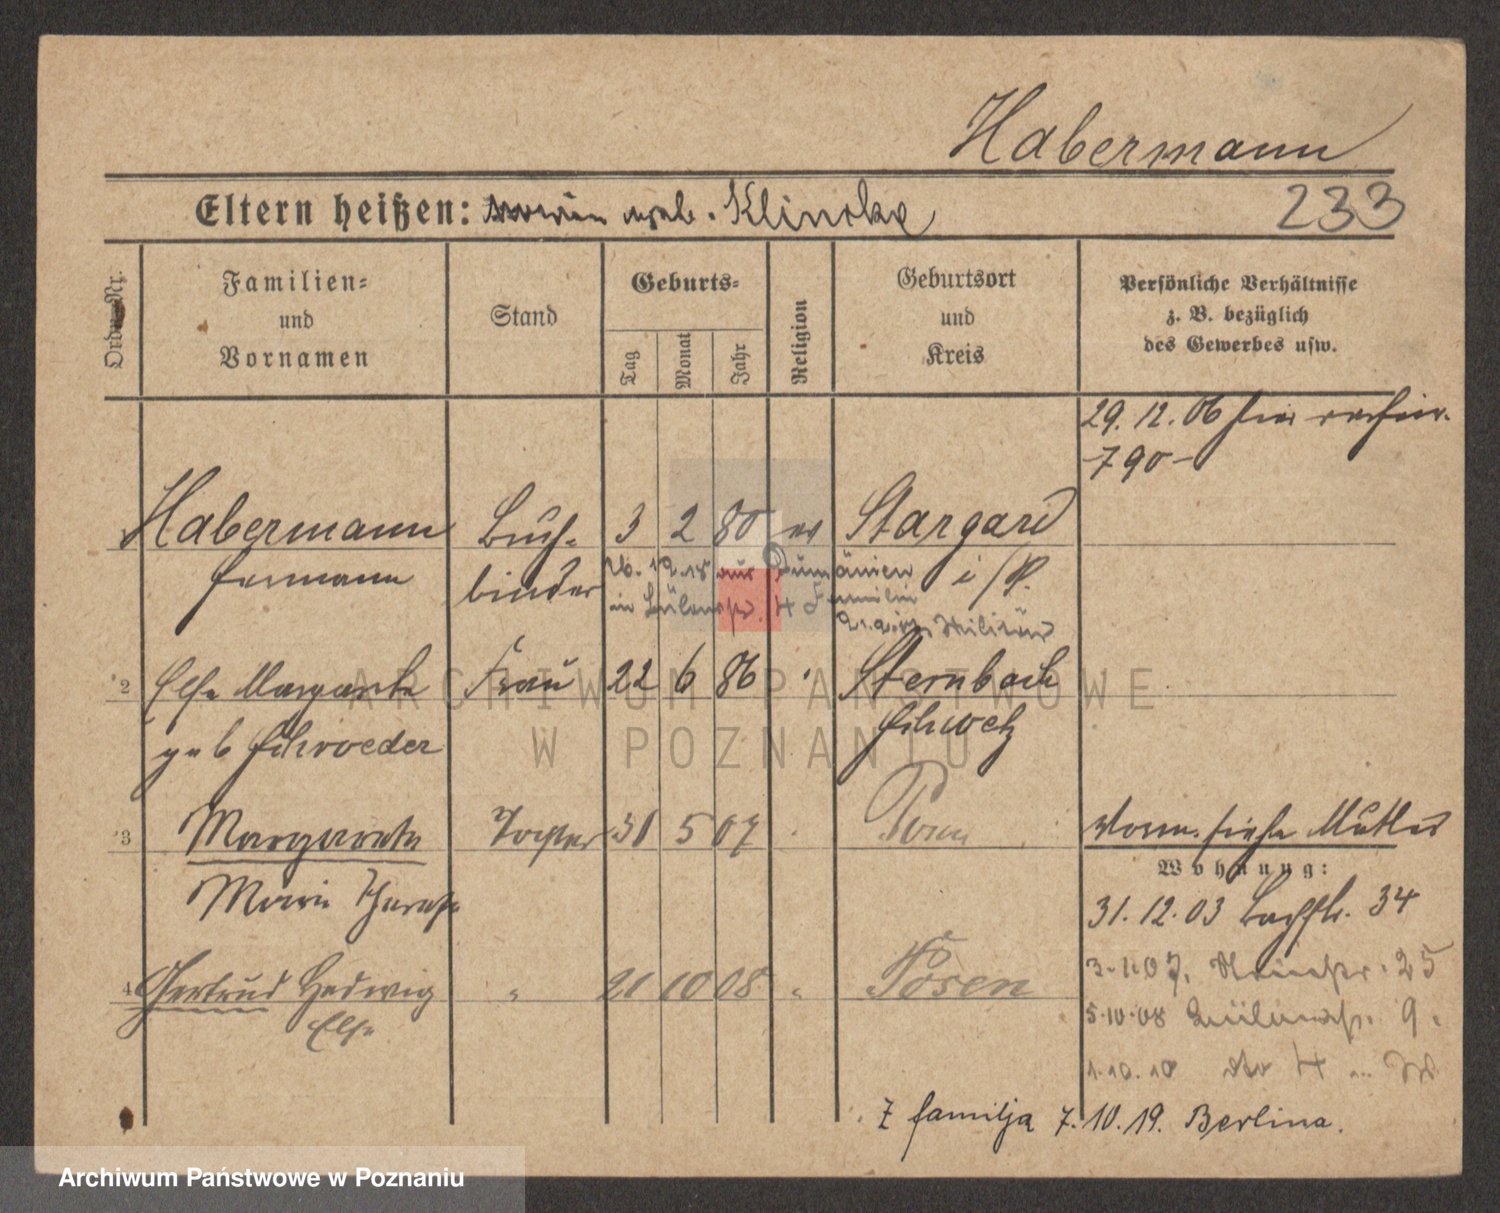 Habermann
Eltern heißen: geb. Klincke
233
Ordn.-Nr.
Familien-
und
Vornamen
Stand
Geburts-
Tag
Monat
Jahr
Religion
Geburtsort
und
Kreis
Persönliche Verhältnisse
z. B. bezüglich
des Gewerbes usw.
29. 12. 06 hier
-790-
1 Habermann Buch- 3 2 80 ev Stargard
Hermann binder i/P.
26. 12. 18 aus Rumänien
in 4 Familie
Militär
2 Else Margarete Frau 22 6 86 Sternbach
geb Schroeder Schwetz
3 Margarete Tochter 31 5 07 Posen
Marie Therese
Vorm. siehe Mutter
Wohnung:
31. 12. 03 Bachstr. 34
4 Gertrud Hedwig " 21 10 08 " Posen
Else
3.1.07. 25
5.10.08 9.
1.10.10 dto 4
Z familja 7.10.19. Berlina.
ARCHIWUM PAŃSTWOWE
W POZNANIU
Archiwum Państwowe w Poznaniu